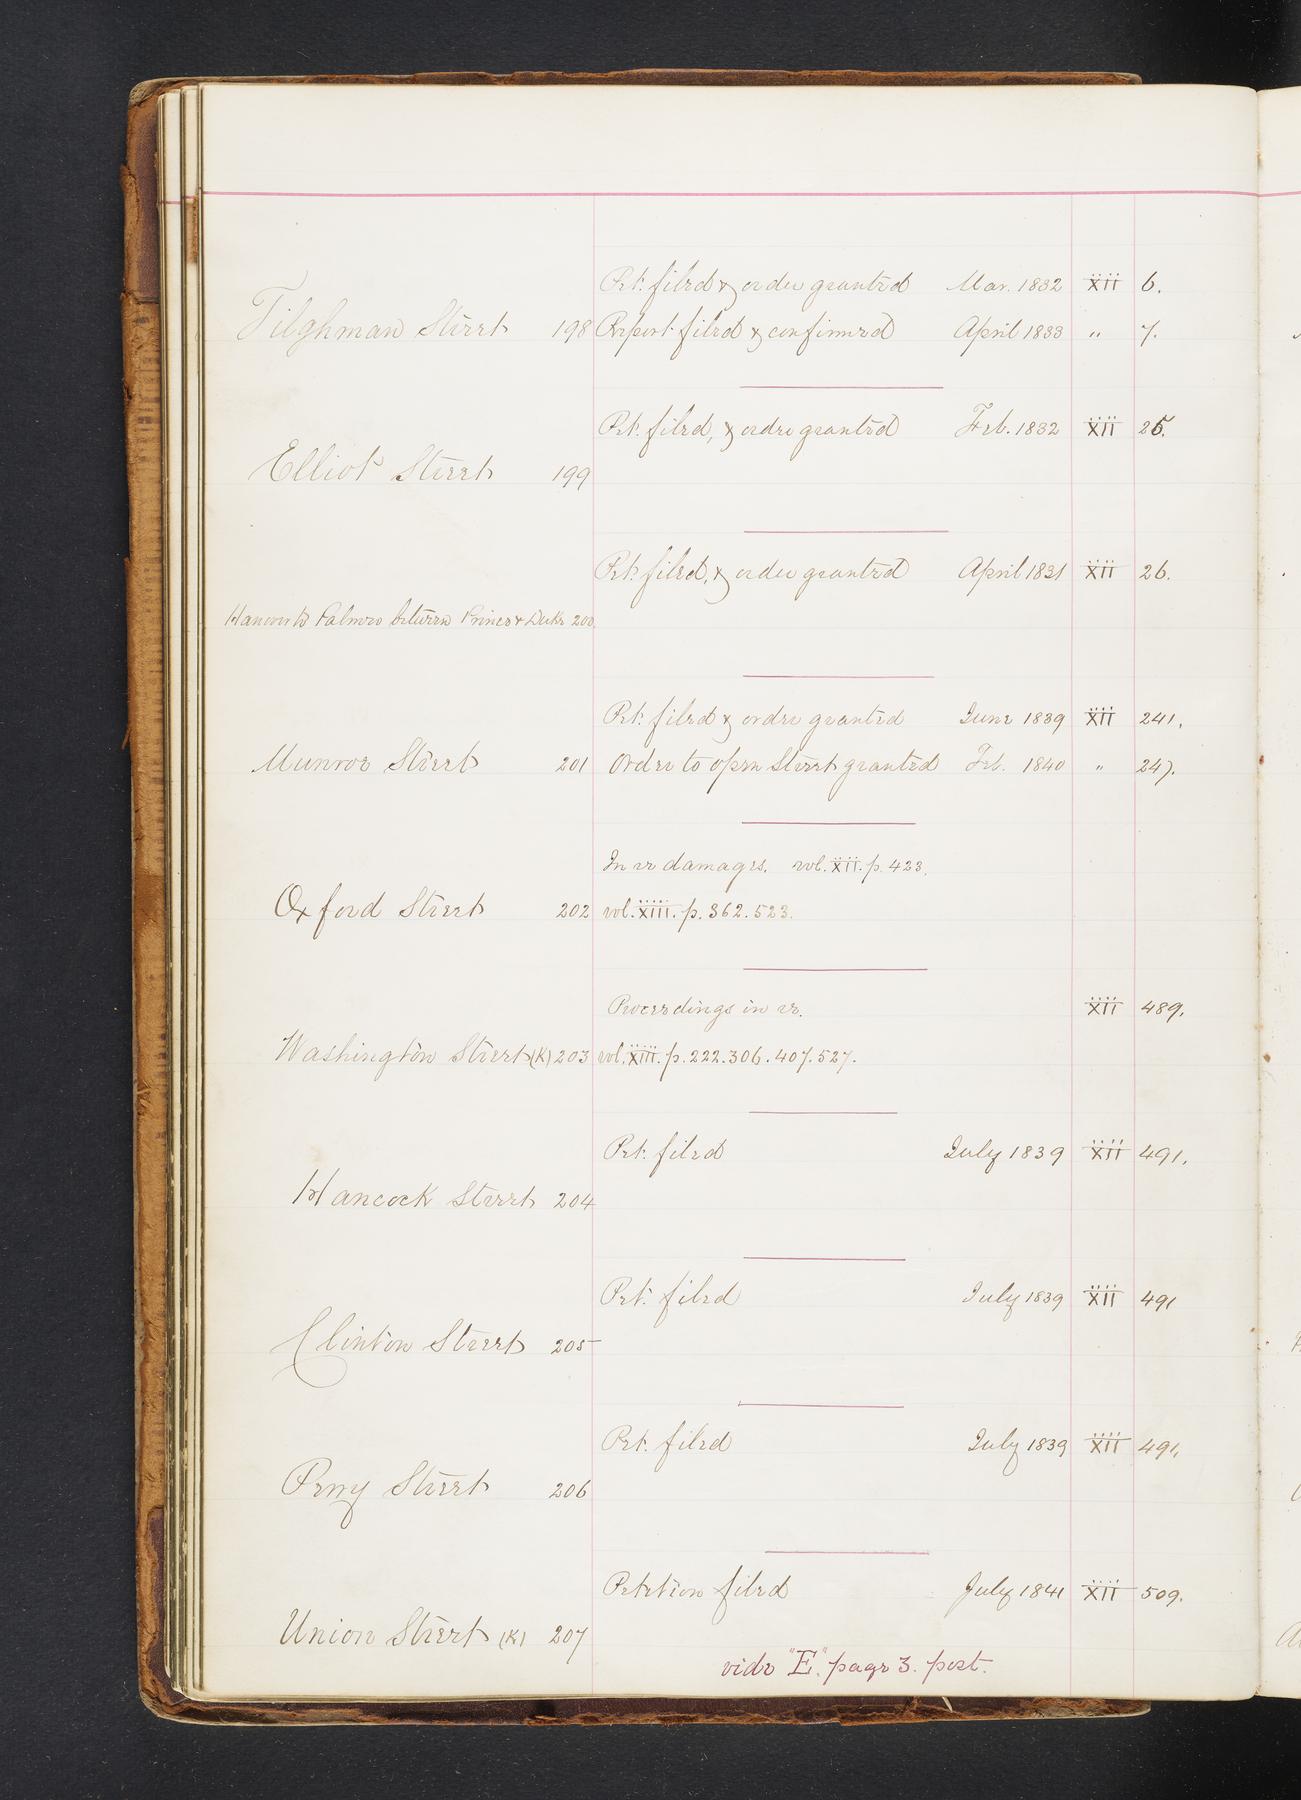 Pet. filed & order granted Mar. 1832 XII 6.
Tilghman Street 198 Report filed & confirmed April 1833 " 7.
Pet. filed, & order granted Feb. 1832 XII 25.
Elliot Street 199
Pet. filed, & order granted April 1831 XII 26.
Hanover to Palmer between Prince & Duke 200
Pet. filed & order granted June 1839 XII 241.
Munroe Street 201 Order to open Street granted Feb. 1840 " 247.
In re damages. vol. XII. p. 423.
Oxford Street 202 vol. XIII. p. 362. 523.
Proceedings in re. XII 489.
Washington Street (K) 203 vol. XIII. p. 222. 306. 407. 527.
Pet. filed July 1839 XII 491.
Hancock Street 204
Pet. filed July 1839 XII 491
Clinton Street 205
Pet. filed July 1839 XII 491.
Perry Street 206
Petition filed July 1841 XII 509.
Union Street (K) 207
vide "E". page 3. post.